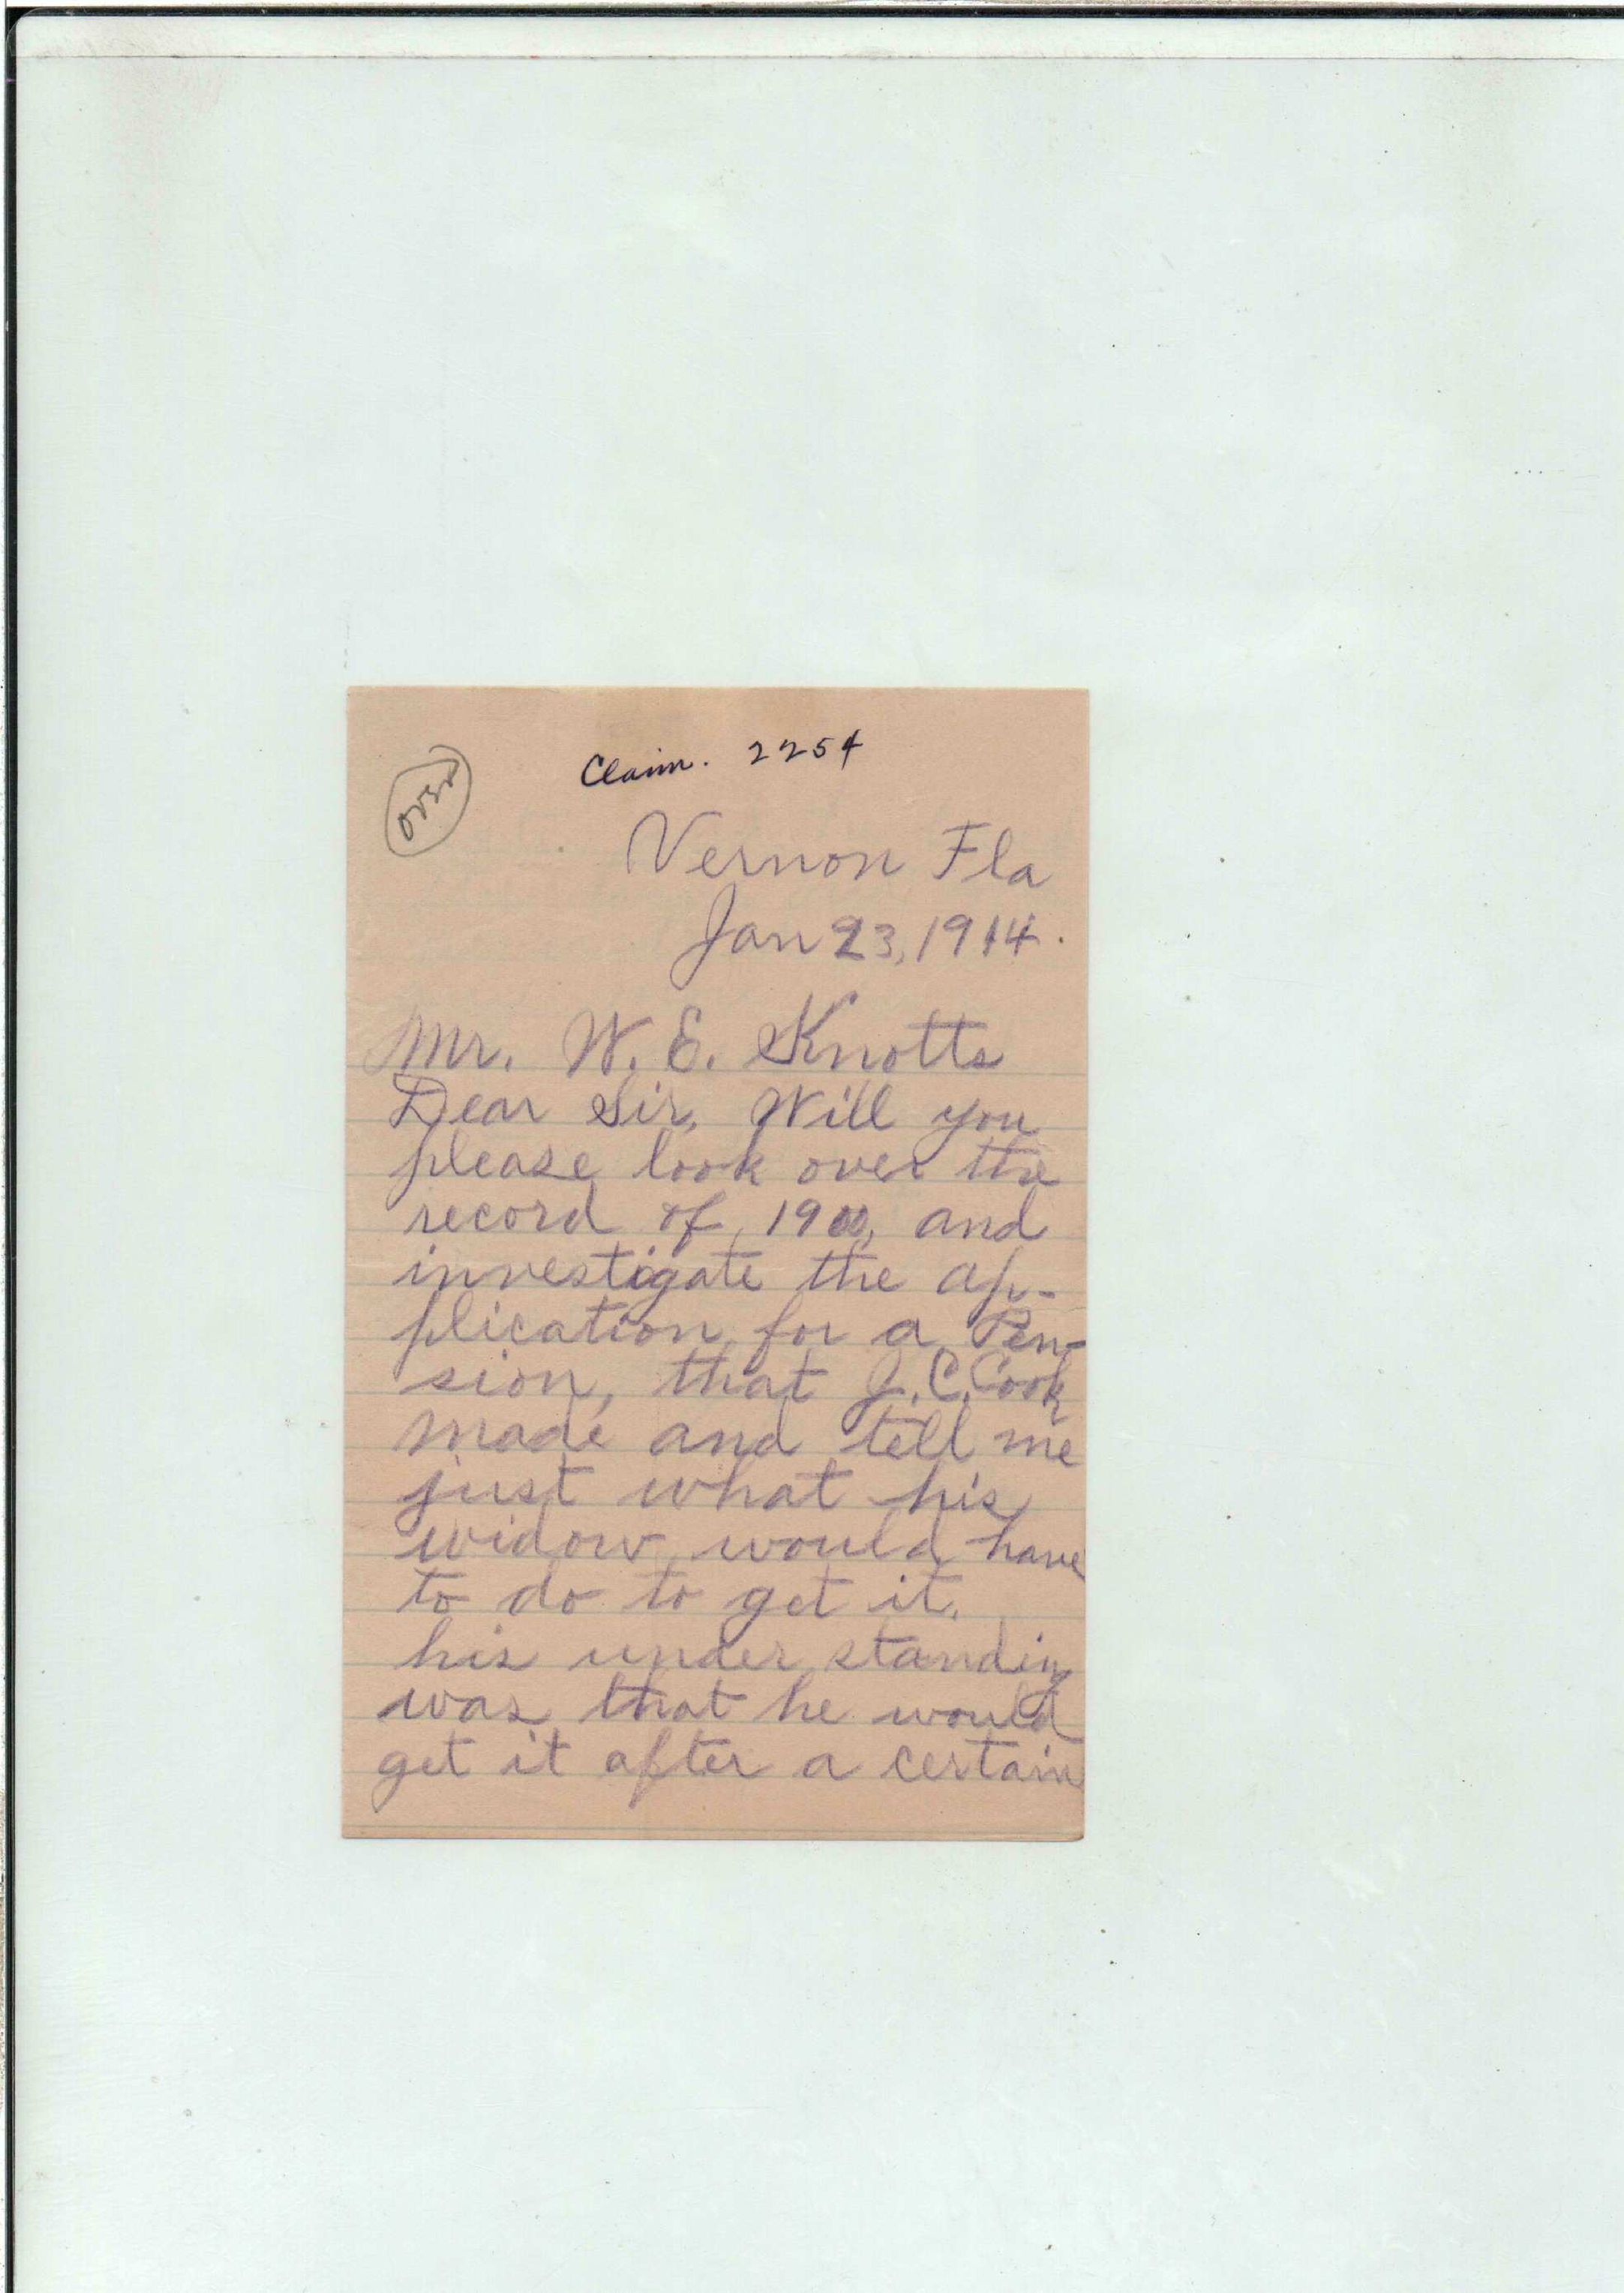 over
Claim. 2254
Vernon Fla
Jan 23, 1914.
Mr. W. E. Knotts
Dear Sir, Will you
please look over the
record of 1900, and
investigate the ap-
plication for a Pen-
sion, that J. C. Cook
made and tell me
just what his
widow would have
to do to get it.
his under standing
was that he would
get it after a certain